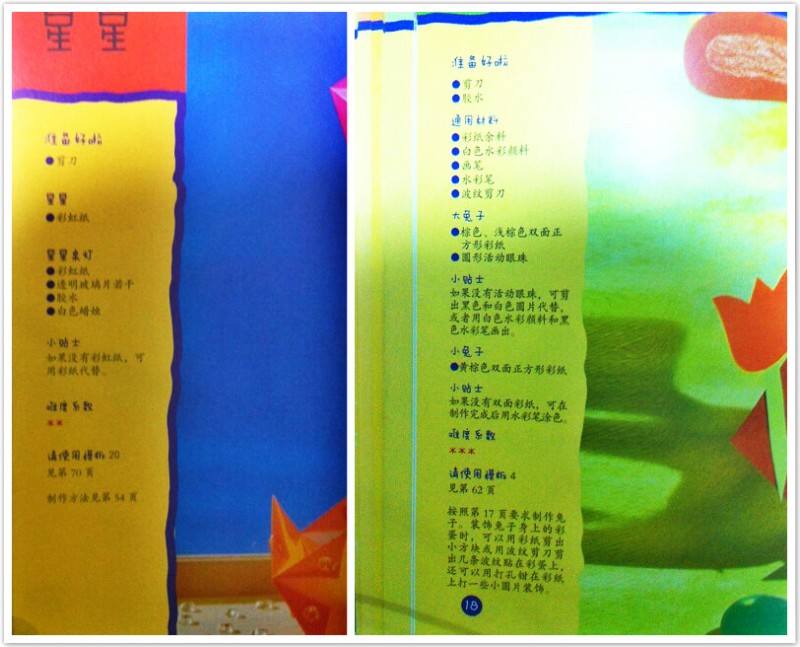 星星
准备好啦
●剪刀
星星
●彩虹纸
星星桌灯
●彩虹纸
●透明玻璃片若干
●胶水
●白色蜡烛
小贴士
如果没有彩虹纸，可
用彩纸代替。
难度系数
**
请使用模板 20
见第 70 页
制作方法见第 54 页
准备好啦
●剪刀
●胶水
通用材料
●彩纸余料
●白色水彩颜料
●画笔
●水彩笔
●波纹剪刀
大兔子
●棕色、浅棕色双面正
方形彩纸
●圆形活动眼珠
小贴士
如果没有活动眼珠，可剪
出黑色和白色圆片代替，
或者用白色水彩颜料和黑
色水彩笔画出。
小兔子
●黄棕色双面正方形彩纸
小贴士
如果没有双面彩纸，可在
制作完成后用水彩笔涂色。
难度系数
***
请使用模板 4
见第 62 页
按照第 17 页要求制作兔
子。装饰兔子身上的彩
蛋时，可以用彩纸剪出
小方块或用波纹剪刀剪
出几条波纹贴在彩蛋上，
还可以用打孔钳在彩纸
上打一些小圆片装饰。
18